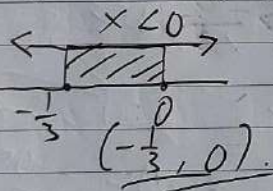 x < 0
-1/3 0
(-1/3, 0).